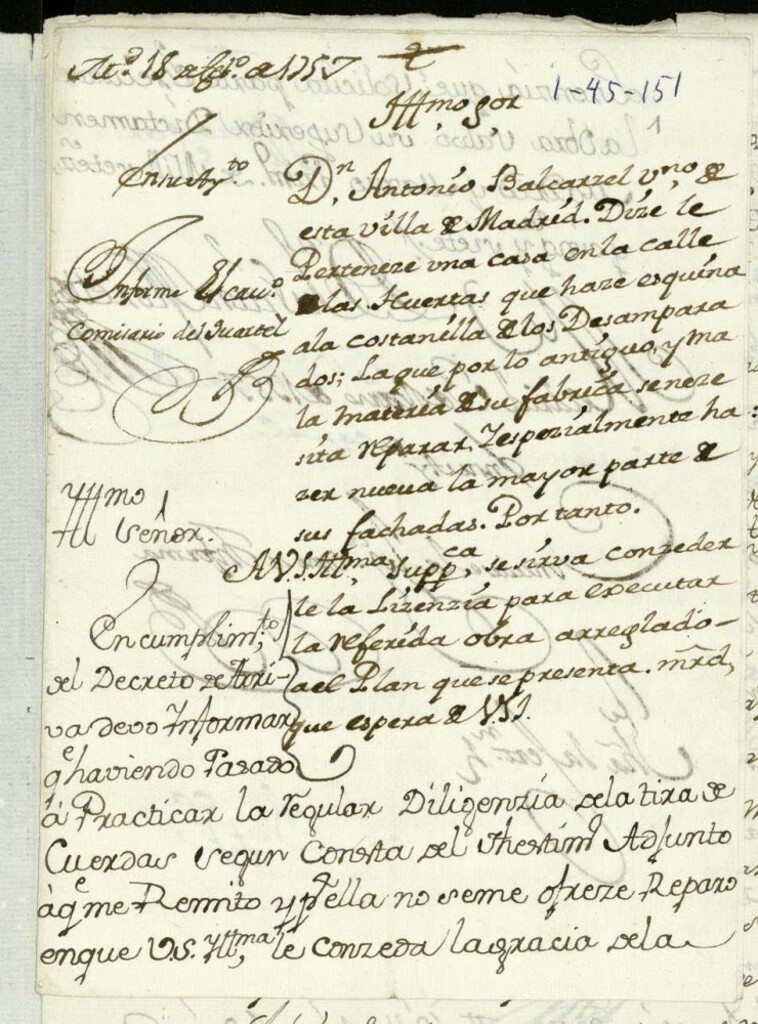 18 de 1757
1-45-151
Yllmo Sor
1
Dn, Antonio Balcarzel vno de
esta villa de Madrid. Dize le
Perteneze vna casa en la calle
de las Huertas que haze esquina
ala costanilla de los Desampara
dos; La que por lo antiguo, y ma
la materia de su fabrica se neze
sita reparar, Yespezialmente ha
zer nueva la mayor parte de
sus fachadas. Por tanto.
AV.S.Yllma, suppca, se sirva conzeder
le la Lizenzia para executar
la referida obra arreglado
ael Plan que se presenta. mrd,
que espera de V.S.I.
Informe El cavo.
Comisario del Quartel
Yllmo
Señor.
En cumplimto,
del Decreto de Arri-
va devo Informar
qe haviendo Pasado
á Practicar la regular Diligenzia de la tira de
Cuerdas segun Consta del thestimo Adjunto
à qe me Remito y pr ella no seme ofreze Reparo
enque V.S. Yllma, le conzeda la gracia de la